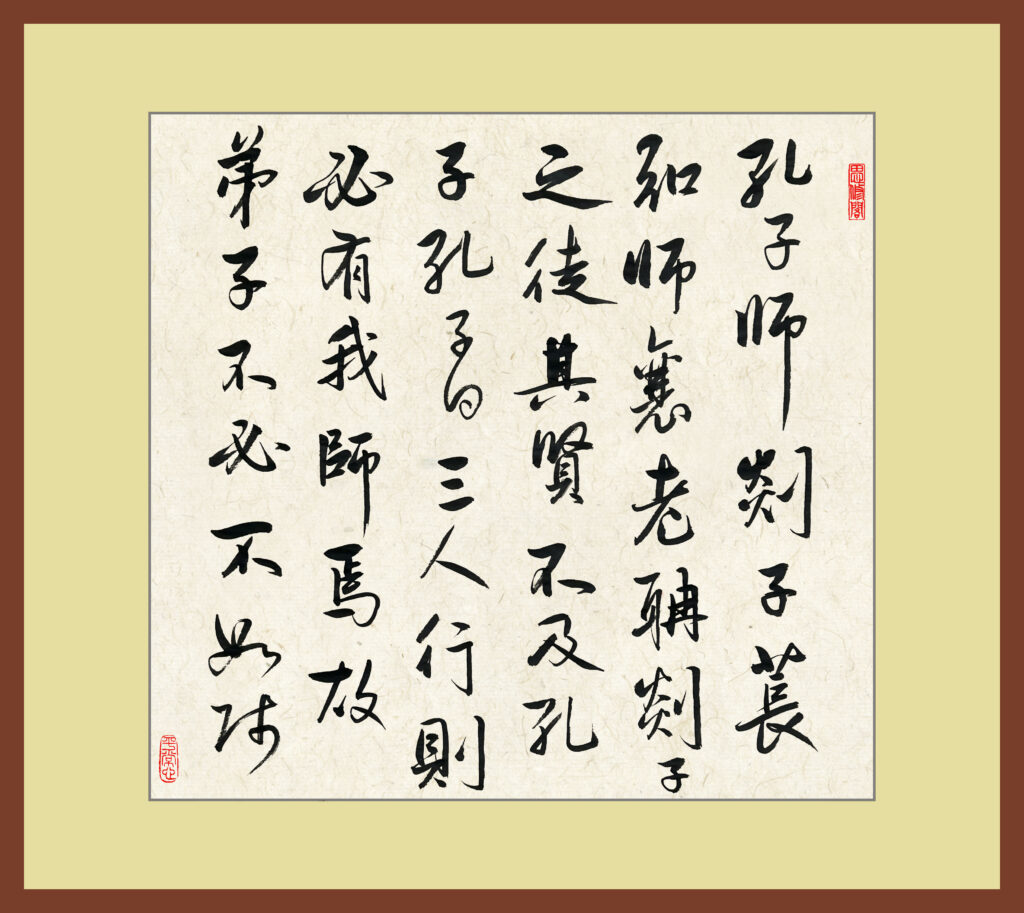 思修閣
孔子师郯子萇
弘师襄老聃郯子
之徒其賢不及孔
子孔子曰三人行則
必有我師焉故
弟子不必不如师
平常心